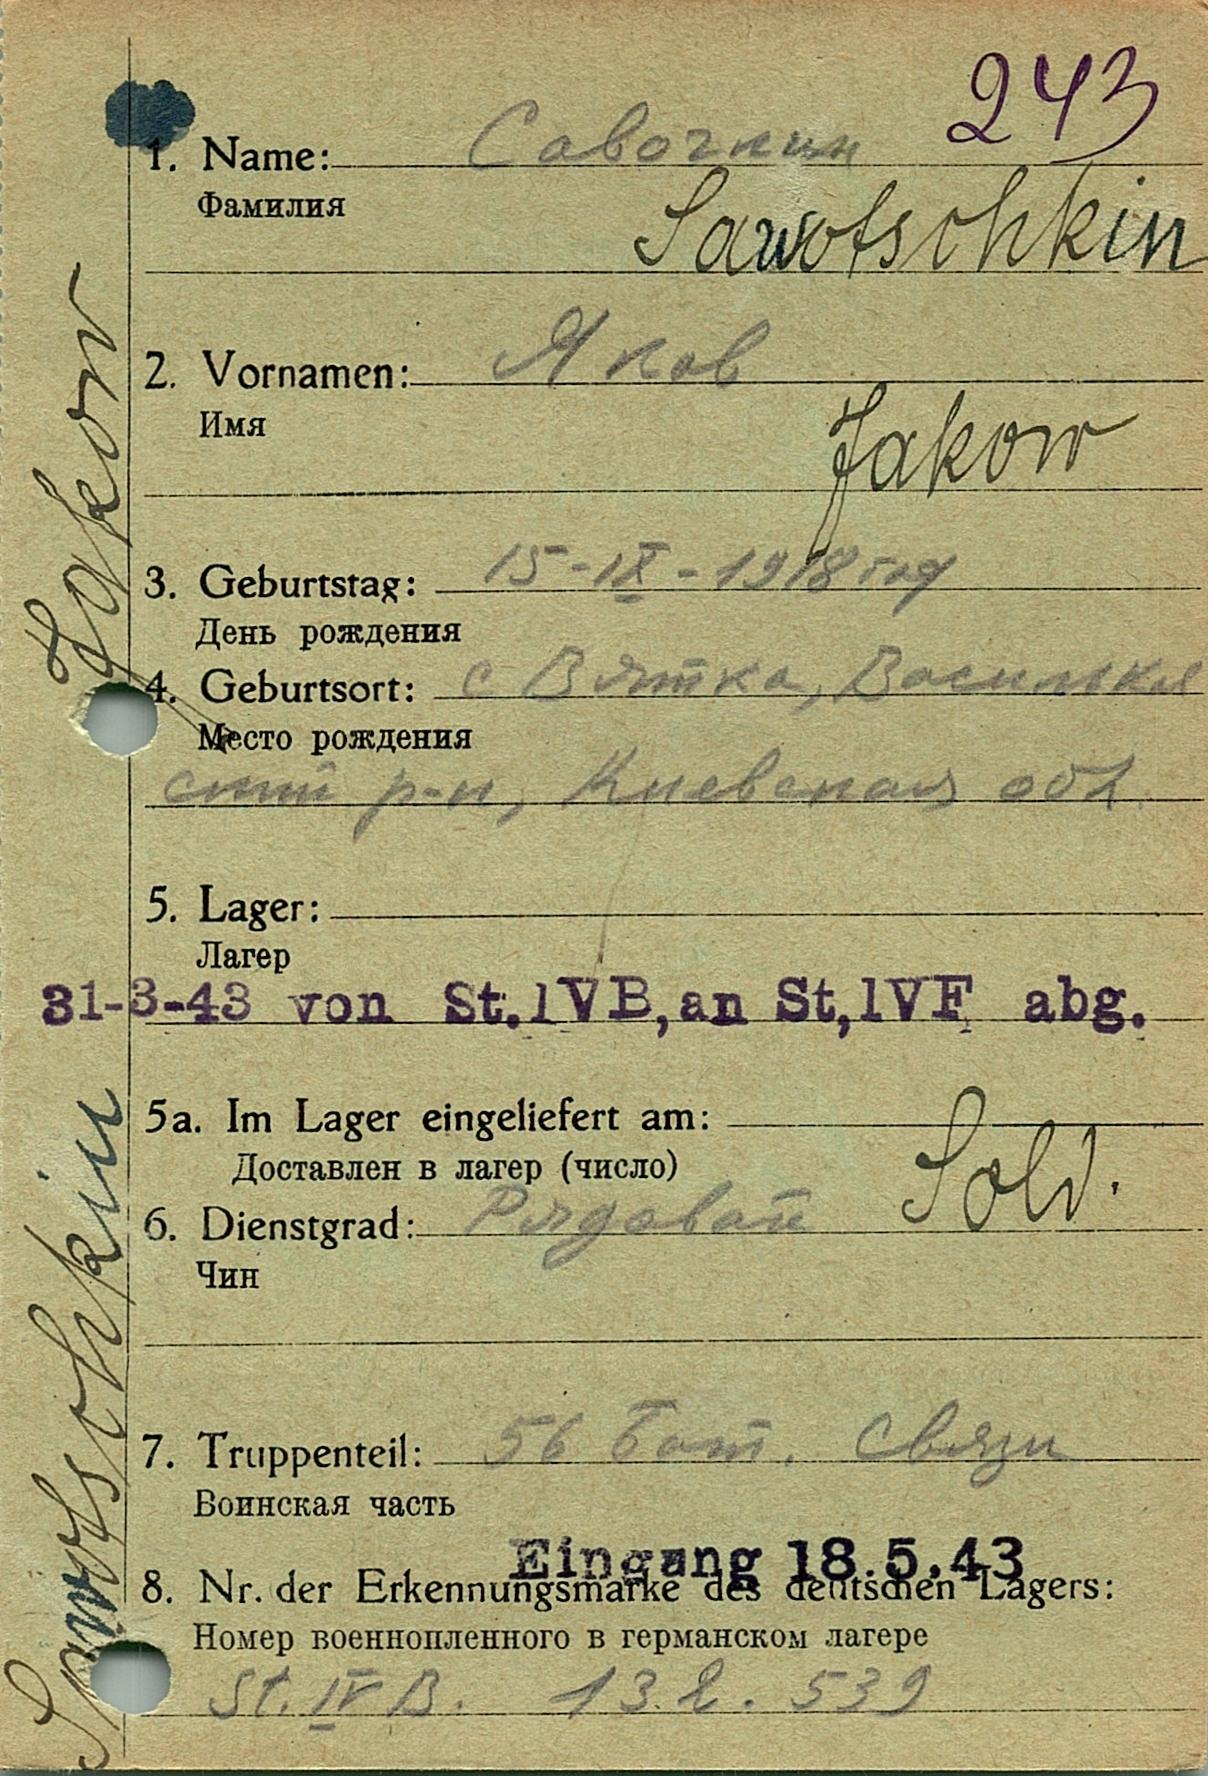 243
1. Name: Савочкин
Фамилия
Sawotschkin
2. Vornamen: Яков
Имя
Jakow
3. Geburtstag: 15-IX-1918 год
День рождения
4. Geburtsort: с Вятка, Василькя
Место рождения
ский р-н, Киевская обл.
5. Lager:
Лагер
31-3-43 von St.lVB,an St,lVF abg.
5a. Im Lager eingeliefert am:
Доставлен в лагер (число)
Sold.
6. Dienstgrad: Рядовой
Чин
7. Truppenteil: 56 бат. связи
Воинская часть
Eingang 18.5.43
8. Nr. der Erkennungsmarke des deutschen Lagers:
Номер военнопленного в германском лагере
St. IV B. 13.2.539
Sawotschkin Jakow